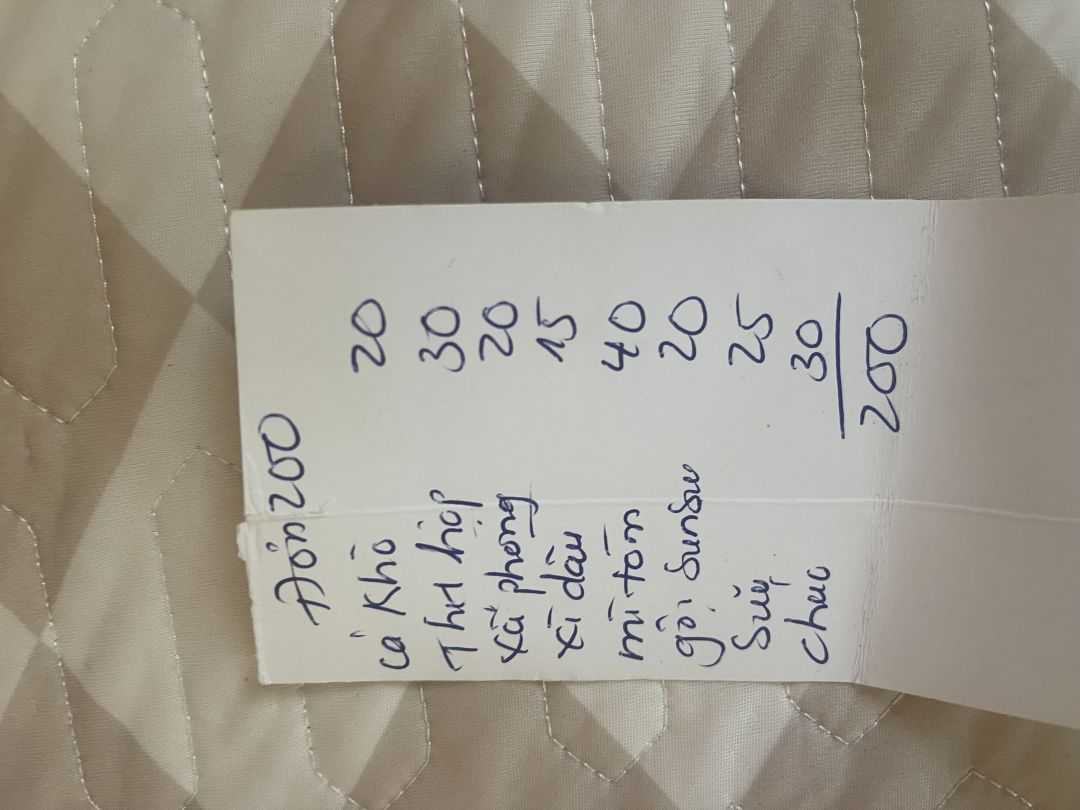 Đơn 200
cá Khô 20
Thịt hộp 30
xà phòng 20
xì dầu 15
mì tôm 40
gội sunsu 20
Sữa 25
chao 30
200